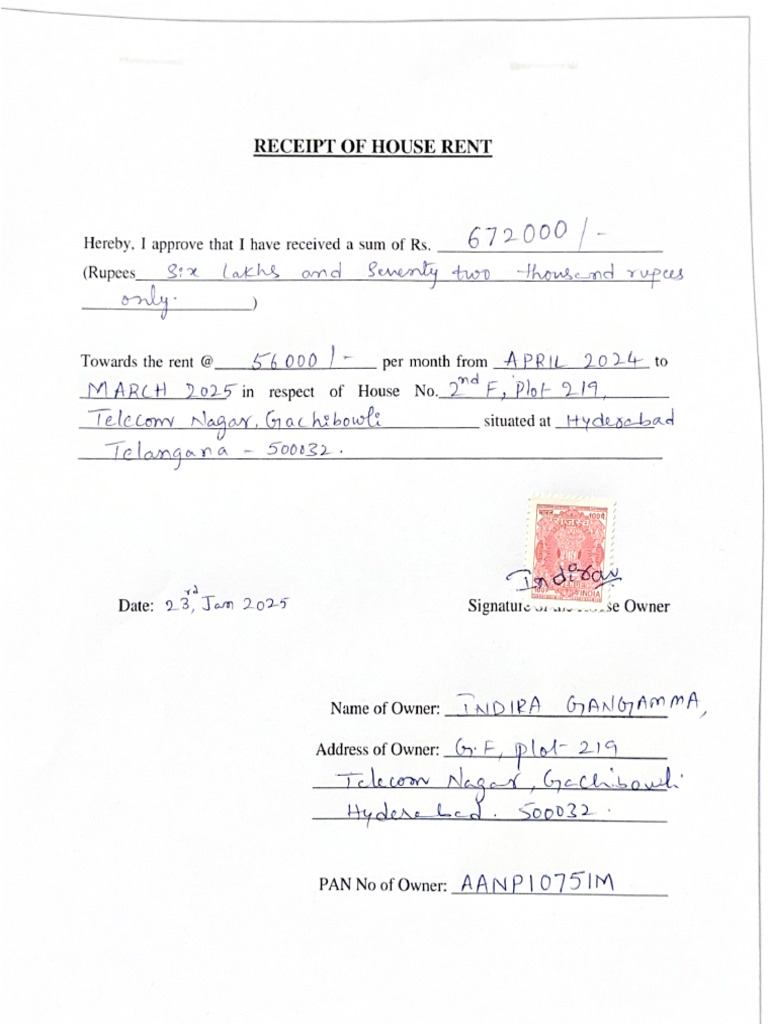 RECEIPT OF HOUSE RENT
Hereby, I approve that I have received a sum of Rs. 672000/-
(Rupees Six Lakhs and Seventy two thousand rupees
only. )
Towards the rent @ 56000/- per month from APRIL 2024 to
MARCH 2025 in respect of House No. 2nd F, Plot 219,
Telecom Nagar, Gachibowli situated at Hyderabad
Telangana - 500032.
भारत राजस्व
INDIA
Indira
Date: 23rd, Jan 2025 Signature of the House Owner
Name of Owner: INDIRA GANGAMMA,
Address of Owner: G.F, plot-219
Telecom Nagar, Gachibowli
Hyderabad. 500032.
PAN No of Owner: AANPI0751M